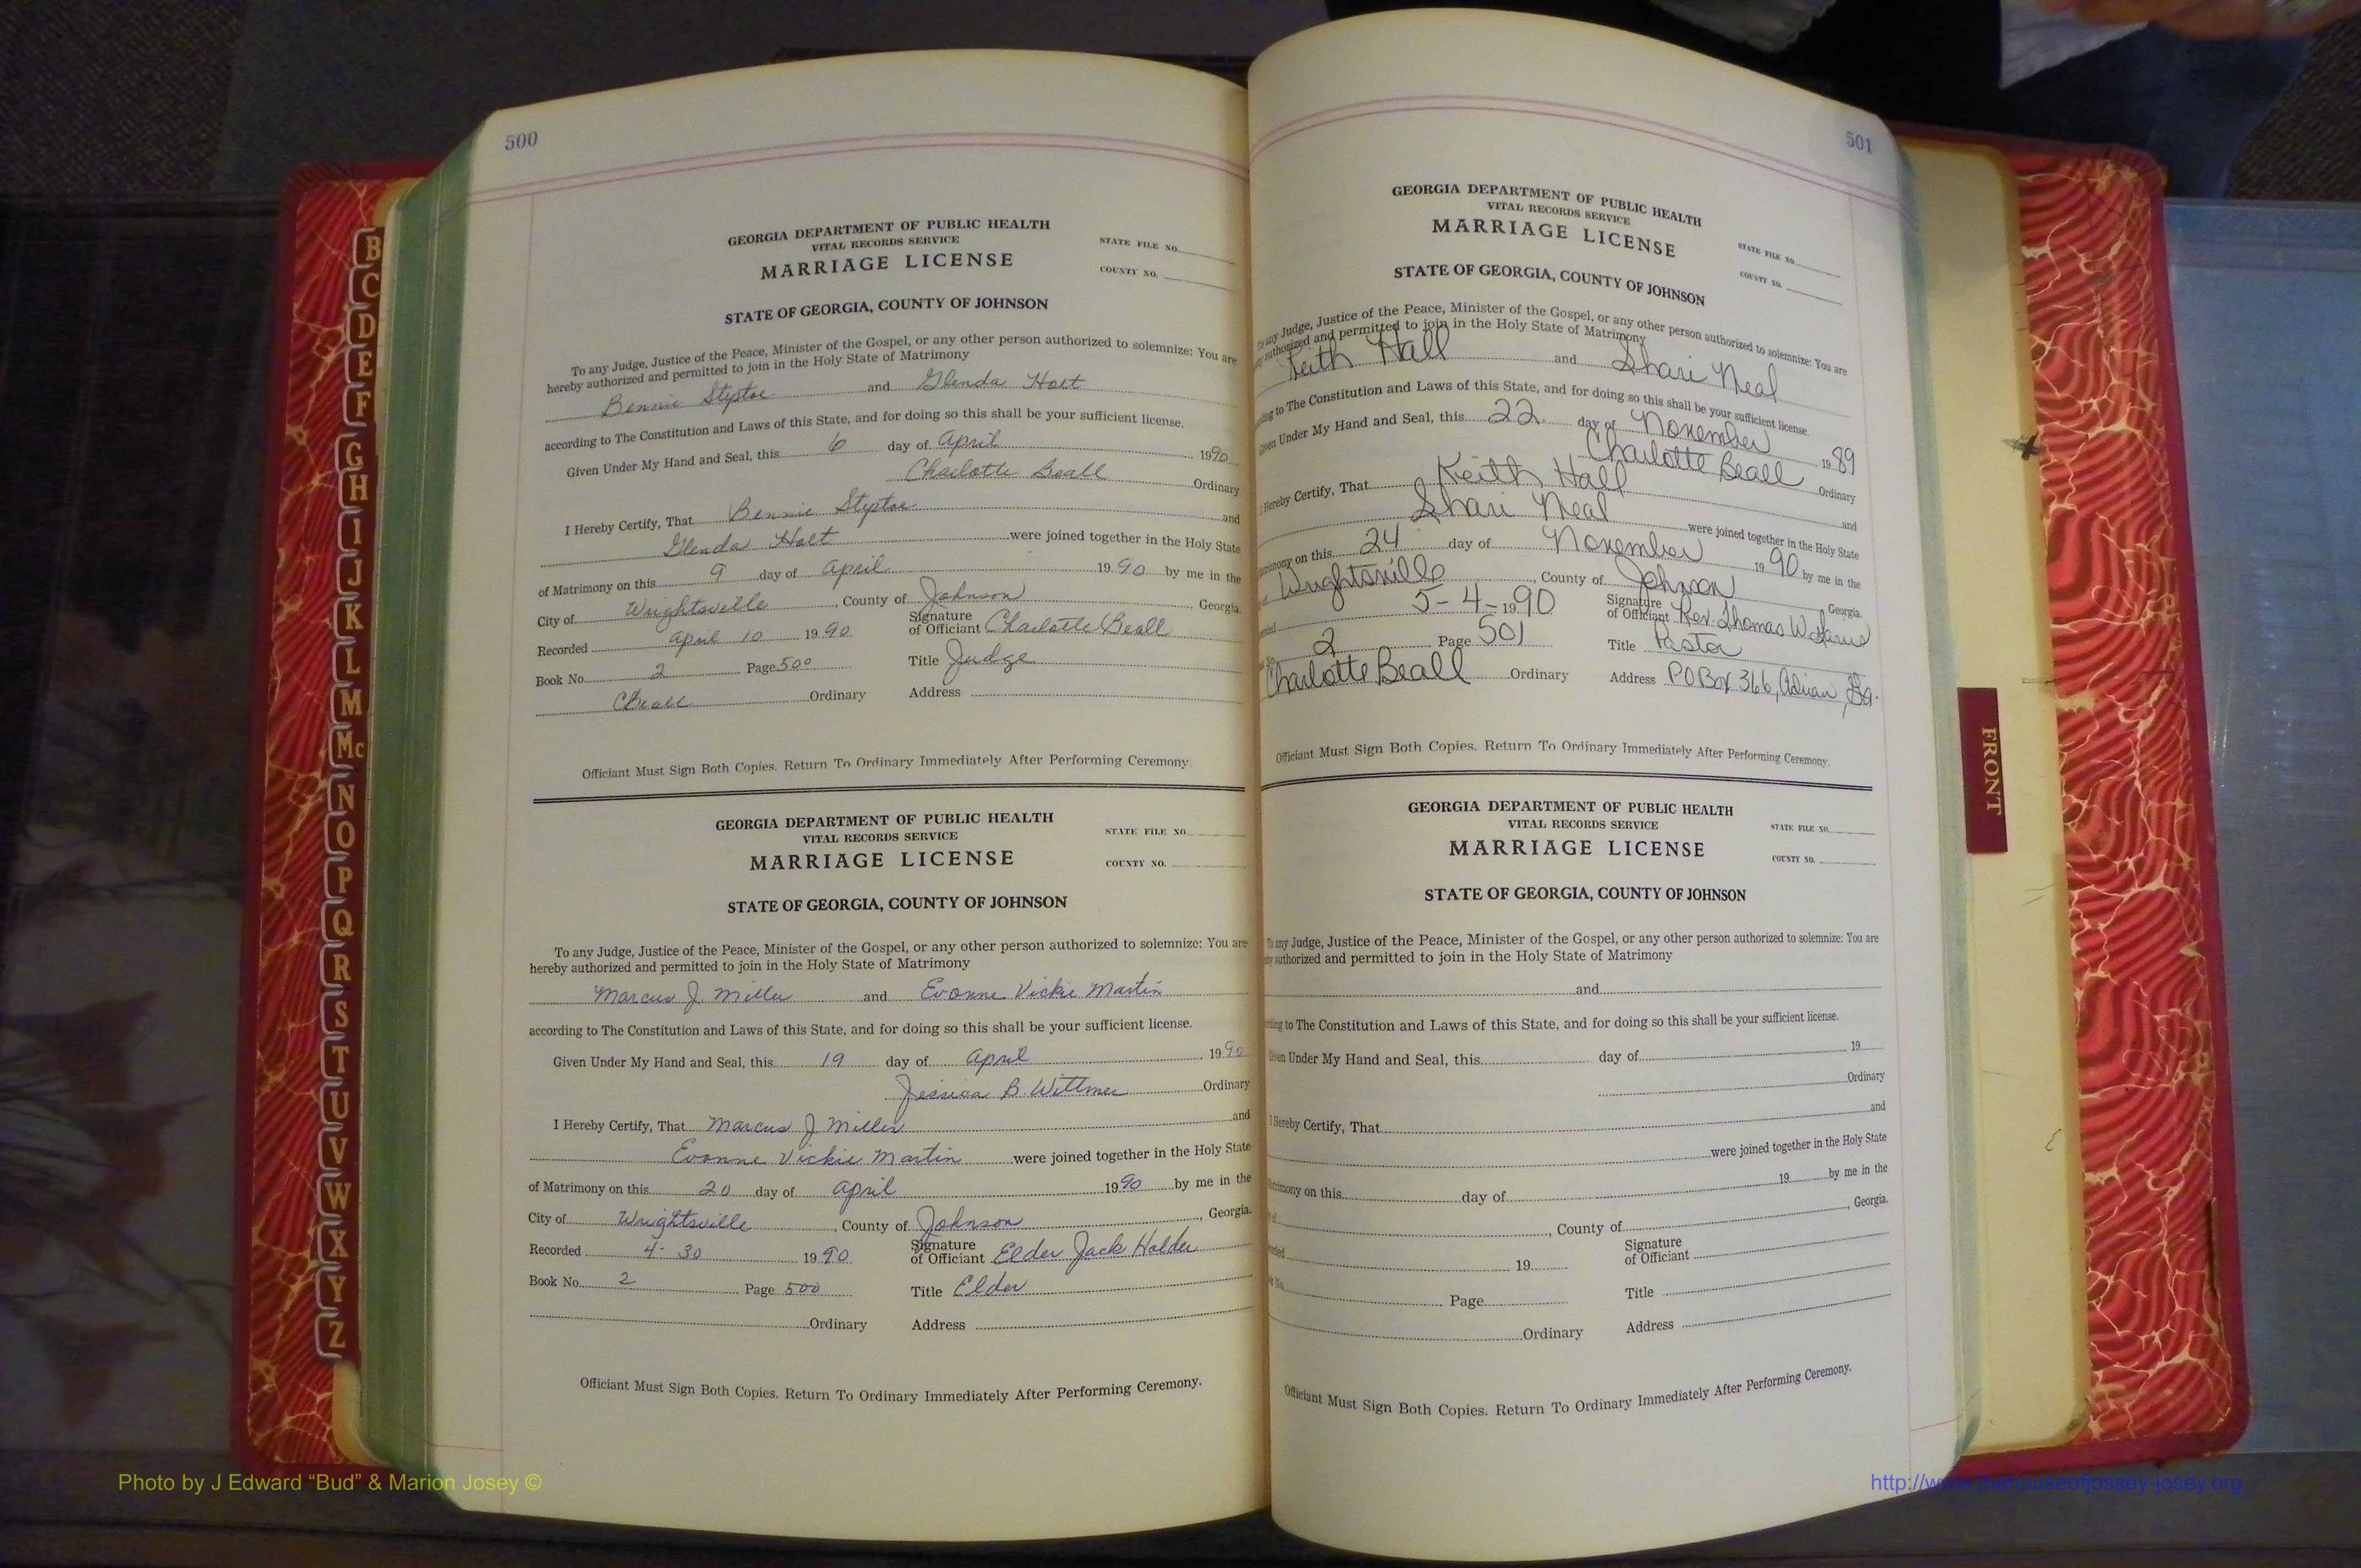 500
GEORGIA DEPARTMENT OF PUBLIC HEALTH
VITAL RECORDS SERVICE
MARRIAGE LICENSE
STATE FILE NO.
COUNTY NO.
STATE OF GEORGIA, COUNTY OF JOHNSON
To any Judge, Justice of the Peace, Minister of the Gospel, or any other person authorized to solemnize: You are
hereby authorized and permitted to join in the Holy State of Matrimony
Bennie Steptoe and Glenda Holt
according to The Constitution and Laws of this State, and for doing so this shall be your sufficient license.
Given Under My Hand and Seal, this 6 day of April 1990
Charlotte Beall Ordinary
I Hereby Certify, That Bennie Steptoe and
Glenda Holt were joined together in the Holy State
of Matrimony on this 9 day of April 1990 by me in the
City of Wrightsville, County of Johnson, Georgia.
Recorded April 10 1990 Signature of Officiant Charlotte Beall
Book No. 2 Page 500 Title Judge
CBeall Ordinary Address
Officiant Must Sign Both Copies. Return To Ordinary Immediately After Performing Ceremony.
GEORGIA DEPARTMENT OF PUBLIC HEALTH
VITAL RECORDS SERVICE
MARRIAGE LICENSE
STATE FILE NO.
COUNTY NO.
STATE OF GEORGIA, COUNTY OF JOHNSON
To any Judge, Justice of the Peace, Minister of the Gospel, or any other person authorized to solemnize: You are
hereby authorized and permitted to join in the Holy State of Matrimony
Marcus J. Miller and Evonne Vickie Martin
according to The Constitution and Laws of this State, and for doing so this shall be your sufficient license.
Given Under My Hand and Seal, this 19 day of April 1990
Jessica B. Wittmer Ordinary
I Hereby Certify, That Marcus J Miller and
Evonne Vickie Martin were joined together in the Holy State
of Matrimony on this 20 day of April 1990 by me in the
City of Wrightsville, County of Johnson, Georgia.
Recorded 4-30 1990 Signature of Officiant Elder Jack Holder
Book No. 2 Page 500 Title Elder
Ordinary Address
Officiant Must Sign Both Copies. Return To Ordinary Immediately After Performing Ceremony.
501
GEORGIA DEPARTMENT OF PUBLIC HEALTH
VITAL RECORDS SERVICE
MARRIAGE LICENSE
STATE FILE NO.
COUNTY NO.
STATE OF GEORGIA, COUNTY OF JOHNSON
To any Judge, Justice of the Peace, Minister of the Gospel, or any other person authorized to solemnize: You are
authorized and permitted to join in the Holy State of Matrimony
Keith Hall and Shari Neal
to The Constitution and Laws of this State, and for doing so this shall be your sufficient license.
Given Under My Hand and Seal, this 22 day of November 1989
Charlotte Beall Ordinary
I Hereby Certify, That Keith Hall and
Shari Neal were joined together in the Holy State
on this 24 day of November 1990 by me in the
Wrightsville, County of Johnson, Georgia.
5-4-1990 Signature of Officiant Rev. Thomas W.
2 Page 501 Title Pastor
Charlotte Beall Ordinary Address PO Box 366, Adrian, Ga.
Officiant Must Sign Both Copies. Return To Ordinary Immediately After Performing Ceremony.
GEORGIA DEPARTMENT OF PUBLIC HEALTH
VITAL RECORDS SERVICE
MARRIAGE LICENSE
STATE FILE NO.
COUNTY NO.
STATE OF GEORGIA, COUNTY OF JOHNSON
To any Judge, Justice of the Peace, Minister of the Gospel, or any other person authorized to solemnize: You are
authorized and permitted to join in the Holy State of Matrimony
and
to The Constitution and Laws of this State, and for doing so this shall be your sufficient license.
Given Under My Hand and Seal, this day of 19
Ordinary
I Hereby Certify, That and
were joined together in the Holy State
on this day of 19 by me in the
, County of , Georgia.
19 Signature of Officiant
Page Title
Ordinary Address
Officiant Must Sign Both Copies. Return To Ordinary Immediately After Performing Ceremony.
B
C
D
E
F
G
H
I
J
K
L
M
Mc
N
O
P
Q
R
S
T
U
V
W
X
Y
Z
FRONT
Photo by J Edward “Bud” & Marion Josey ©
http://www.thehouseofjossey-josey.org